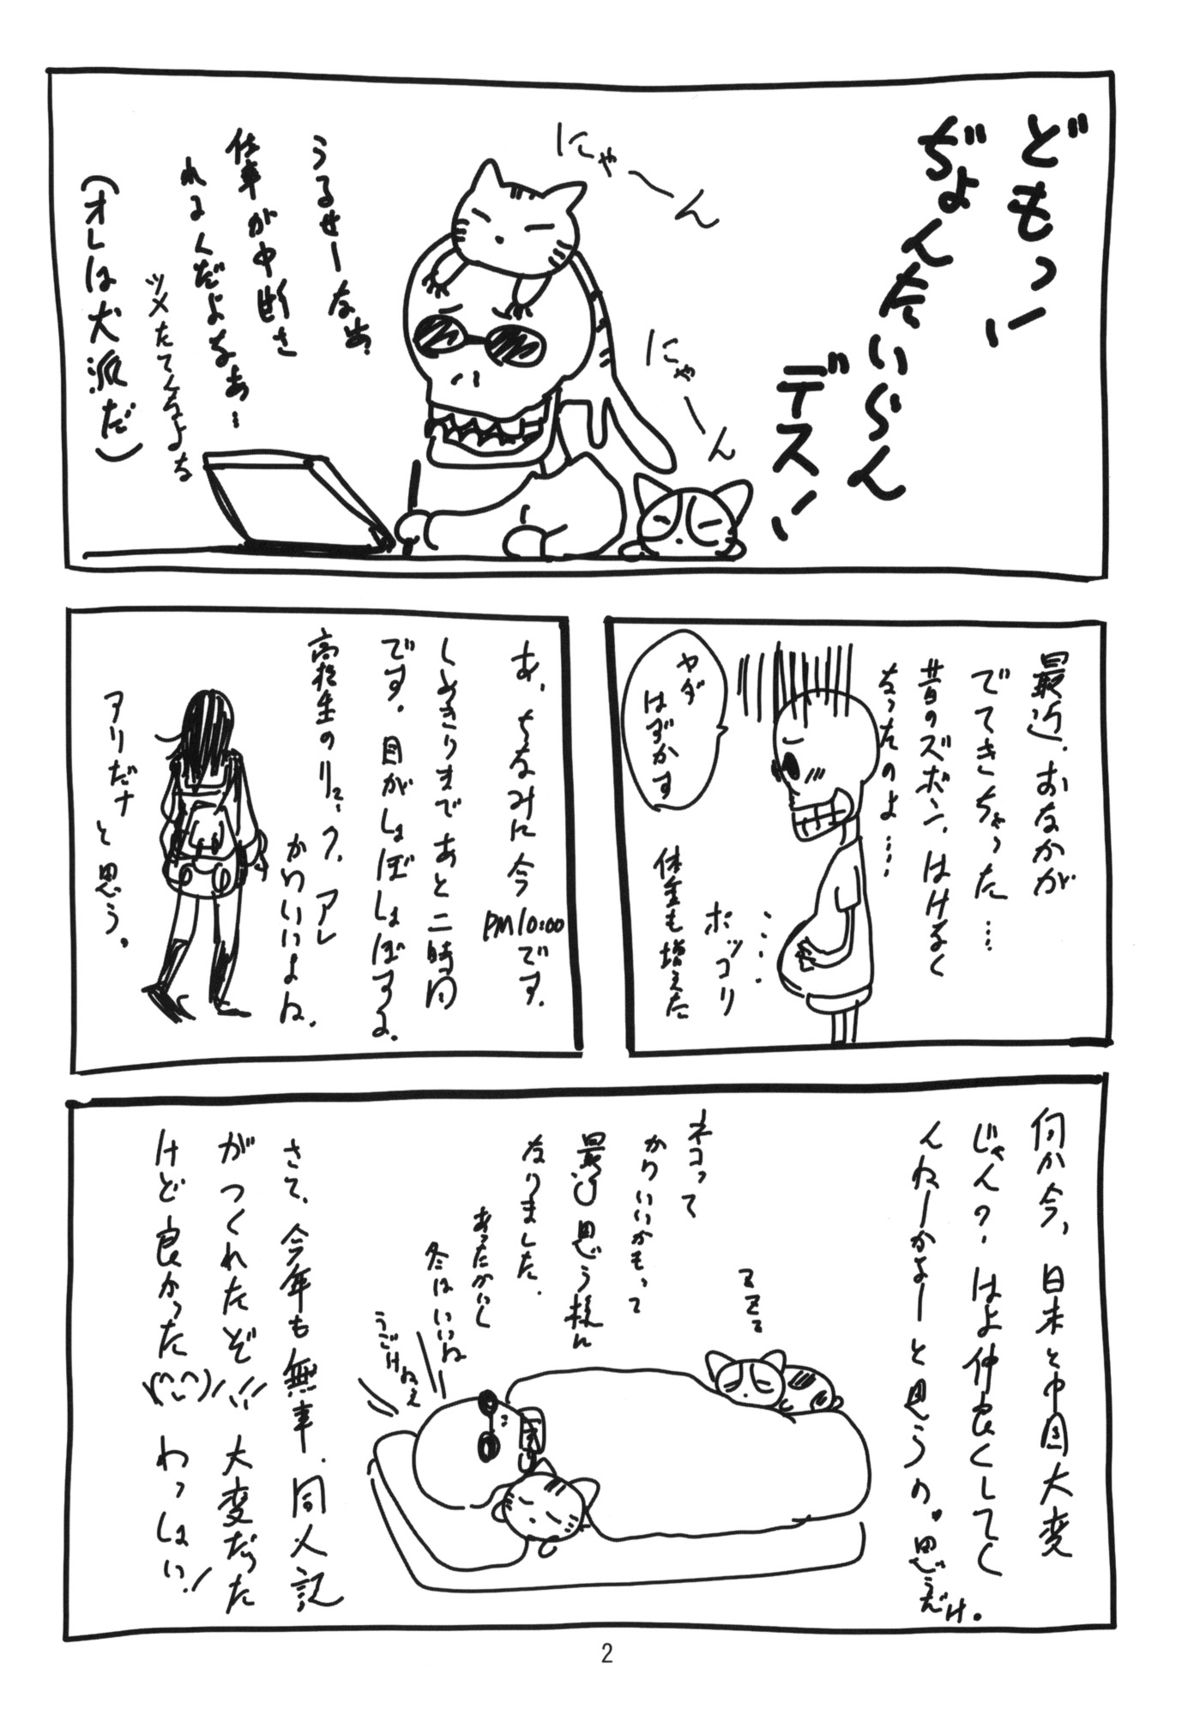 どもっ!
ぢょんたいらん
デス!
にゃーん
にゃーん
うるせーなあ。
仕事が中断さ
れるんだよなぁ…
ツメたてんなよな
(オレは犬派だ)
最近、おなかが
でてきちゃった…
昔のズボン、はけなく
なったのよ…
ヤダ
はずかす
ポッコリ
体重も増えた
あ、ちなみに今
PM10:00です。
しめきりまであと二時間
です。目がしょぼしょぼするよ。
高校生のリュック、アレ
かわいいよね。
アリだナ
と思う。
何か今、日本と中国大変
じゃん?はよ仲良くしてく
んねーかなーと思うの。思うだけ。
ネコって
かわいいかもって
最近思う様に
なりました。
あったかいし
冬はいいね
うごけねぇ
zzzz
さて、今年も無事、同人記
がつくれたぞ!!大変だった
けど良かった\(^-^)/わっしょい!
2